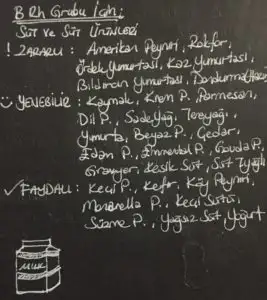 B Rh Grubu İçin:
Süt ve Süt Ürünleri
! ZARARLI : Amerikan Peyniri, Rokfor,
Ördek Yumurtası, Kaz Yumurtası,
Bıldırcın Yumurtası, Dondurma
YENEBİLİR : Kaymak, Krem P. Parmesan,
Dil P., Sade Yağ, Tereyağı,
Yumurta, Beyaz P., Çedar,
Edam P., Emmental P., Gouda P.,
Gravyer, Kesik Süt, Süt Yağı
✓ FAYDALI : Keçi P., Kefir, Köy Peyniri,
Mozarella P., Keçi Sütü,
Süzme P., Yağsız Süt, Yoğurt
MILK